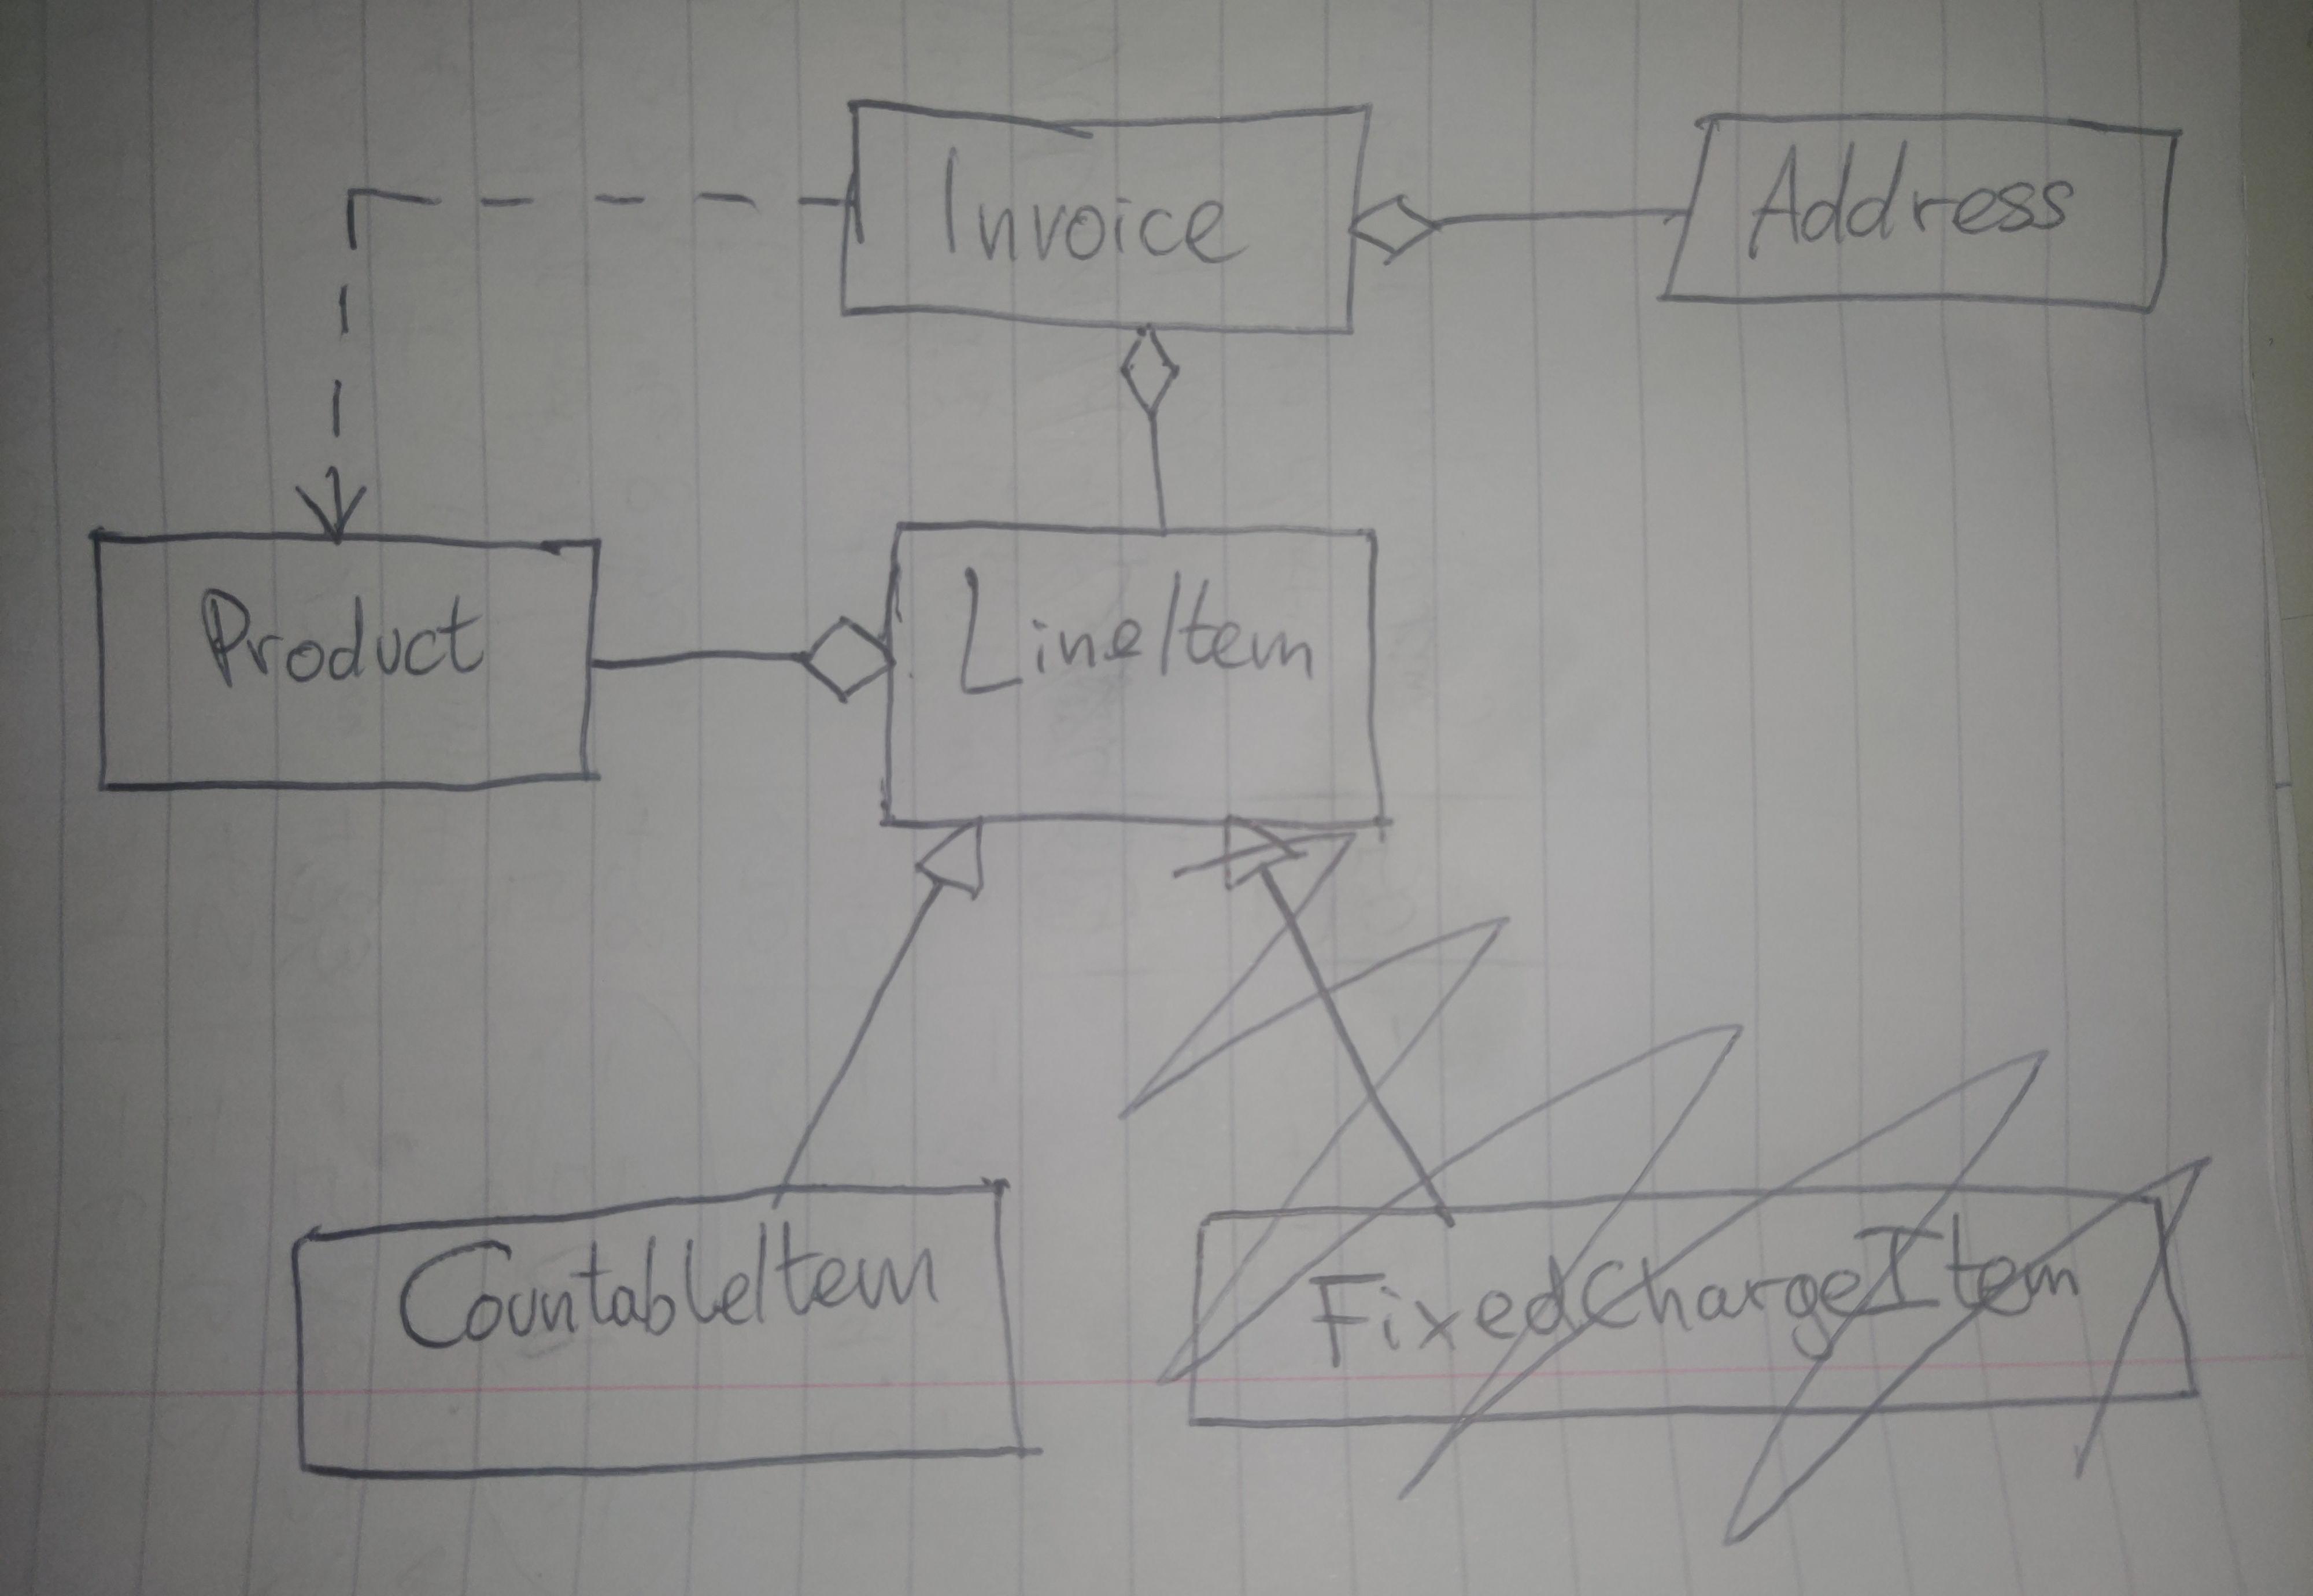 Invoice
Address
Product
LineItem
CountableItem
FixedChargeItem